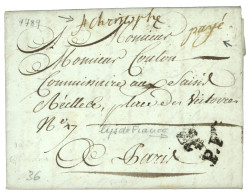 1789
payé
A Monsieur
Monsieur Coulon
Commissaire aux Saisies
Réelles, place des Victoires
N° 47
Lys de France
A Paris
P.P.
36